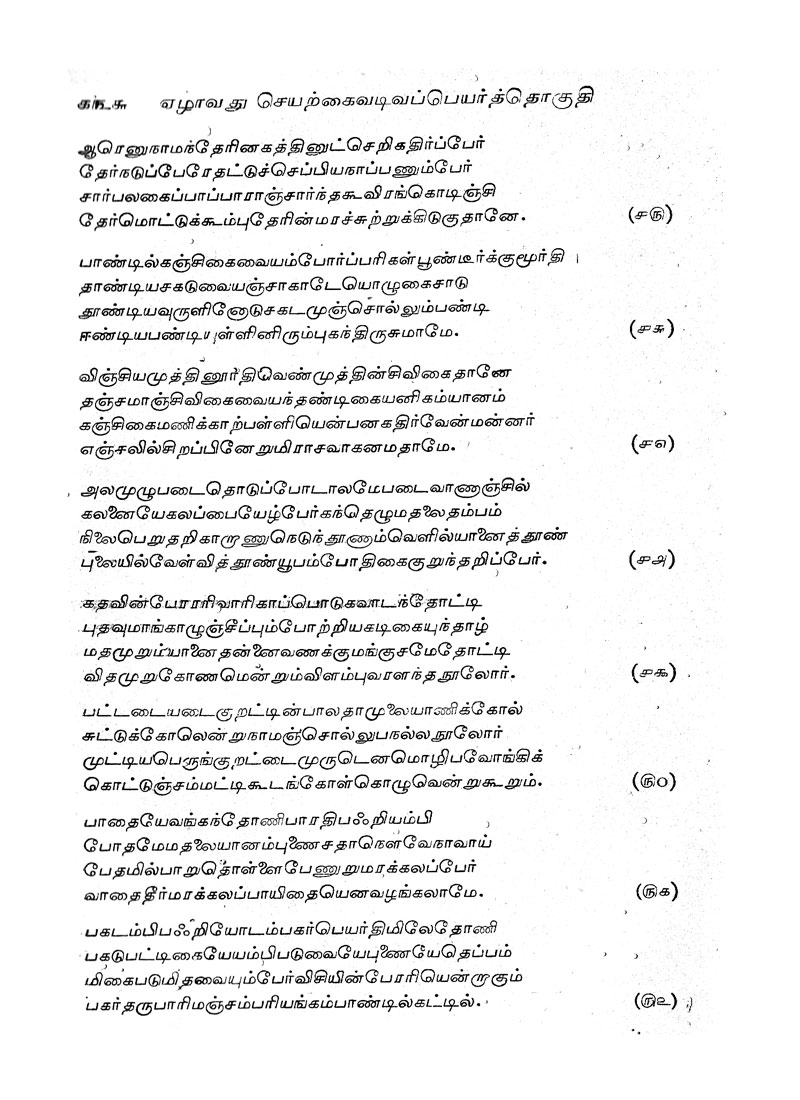 ௧௩௬ ஏழாவது செயற்கைவடிவப்பெயர்த்தொகுதி
ஆரெனுநாமந்தேரினகத்தினுட்செறிகதிர்ப்பேர்
தேர்நடுப்பேரேதட்டுச்செப்பியநாப்பணும்பேர்
சார்பலகைப்பாப்பாராஞ்சார்ந்தகூவிரங்கொடிஞ்சி
தேர்மொட்டுக்கூம்புதேரின்மரச்சுற்றுக்கிடுகுதானே. (௪௫)
பாண்டில்கஞ்சிகைவையம்போர்ப்பரிகள்பூண்டீர்க்குமூர்தி
தாண்டியசகடுவையஞ்சாகாடேயொழுகைசாடு
தூண்டியவுருளினோடுசகடமுஞ்சொல்லும்பண்டி
ஈண்டியபண்டியுள்ளினிரும்புகந்திருசுமாமே. (௪௬)
விஞ்சியமுத்தினூர்திவெண்முத்தின்சிவிகைதானே
தஞ்சமாஞ்சிவிகைவையந்தண்டிகையனிகம்யானம்
கஞ்சிகைமணிக்காற்பள்ளியென்பனகதிர்வேன்மன்னர்
எஞ்சலில்சிறப்பினேறுமிராசவாகனமதாமே. (௪௭)
அலமுழுபடைதொடுப்போடாலமேபடைவாணாஞ்சில்
கலனையேகலப்பையேழ்பேர்கந்தெழுமதலைதம்பம்
நிலைபெறுதறிகாறூணுநெடுந்தூணாம்வெளில்யானைத்தூண்
புலையில்வேள்வித்தூண்யூபம்போதிகைகுறுந்தறிப்பேர். (௪௮)
கதவின்பேரரரிவாரிகாப்பொடுகவாடந்தோட்டி
புதவுமாங்காழுஞ்சீப்பும்போற்றியகடிகையுந்தாழ்
மதமுறும்யானைதன்னைவணக்குமங்குசமேதோட்டி
விதமுறுகோணமென்றும்விளம்புவரளந்தநூலோர். (௪௯)
பட்டடையடைகுறட்டின்பாலதாமுலையாணிக்கோல்
சுட்டுக்கோலென்றுநாமஞ்சொல்லுபநல்லநூலோர்
முட்டியபெருங்குறட்டைமுருடெனமொழிபவோங்கிக்
கொட்டுஞ்சம்மட்டிகூடங்கோள்கொழுவென்றுகூறும். (௫௦)
பாதையேவங்கந்தோணிபாரதிபஃறியம்பி
போதமேமதலையானம்புணைசதாநௌவேநாவாய்
பேதமில்பாறுதொள்ளைபேணுறுமரக்கலப்பேர்
வாதைதீர்மரக்கலப்பாயிதையெனவழங்கலாமே. (௫௧)
பகடம்பிபஃறியோடம்பகர்பெயர்திமிலேதோணி
பகடுபட்டிகையேயம்பிபடுவையேபுணையேதெப்பம்
மிகைபடுமிதவையும்பேர்விசியின்பேரரியென்றாகும்
பகர்தருபாரிமஞ்சம்பரியங்கம்பாண்டில்கட்டில். (௫௨)